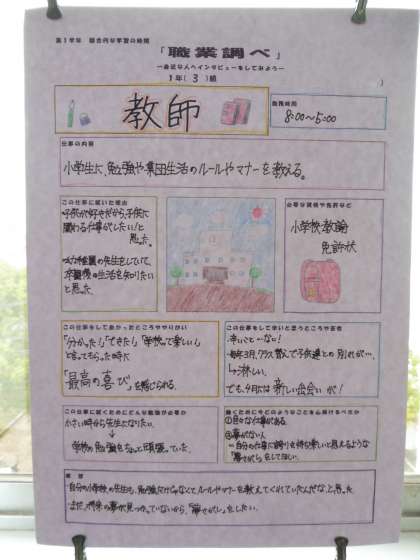 第1学年 総合的な学習の時間
「職業調べ」
―身近な人へインタビューをしてみよう―
1年(3)組
教師
勤務時間
8:00〜5:00
仕事の内容
小学生に、勉強や集団生活のルールやマナーを教える。
この仕事に就いた理由
子供が好きだから、子供に
関わる仕事がしたい!と
思った。
幼稚園の先生をしていて、
卒園後の生活を知りたい
と思った。
必要な資格や免許など
小学校教諭
免許状
この仕事をしてよかったところややりがい
「分かった!」「できた!」「学校って楽しい!」
と言ってもらった時に
「最高の喜び」を感じられる。
この仕事をして辛いと思うところや苦労
辛いこと…ない!
毎年3月、クラス替えで子供達との別れが…。
→淋しい。
でも、4月には新しい出会いが!
この仕事に就くためにどんな勉強が必要か
小さい時から先生になりたい。
↓
学校の勉強をちゃんと頑張っていた。
働くために今どのようなことを心掛けるべきか
①色々な仕事がある。
②夢がない人
→自分の仕事に誇りを持ち楽しいと思えるような
「夢さがし」をしてほしい。
感想
自分の小学校の先生も、勉強だけじゃなくてルールやマナーを教えてくれていたんだなと思った。
まだ、将来の夢が見つかっていないから、「夢さがし」をしたい。